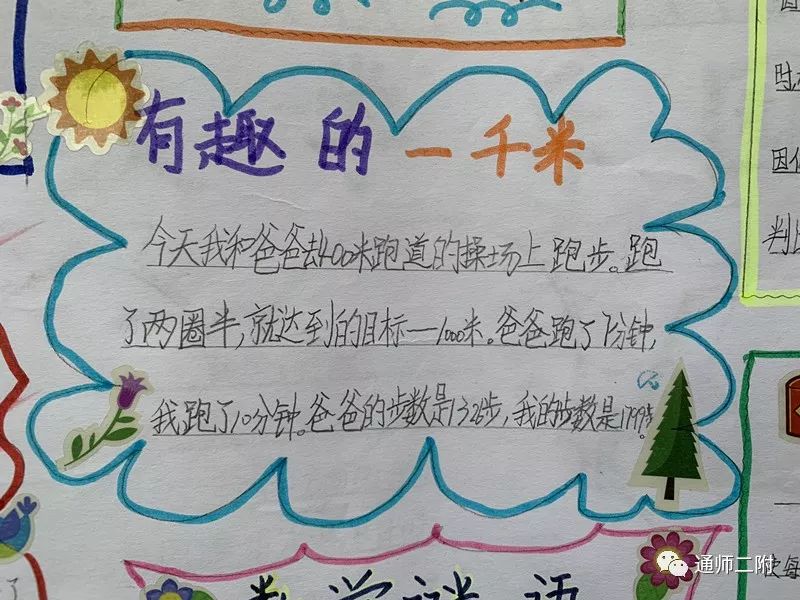 有趣的一千米
今天我和爸爸去400米跑道的操场上跑步。跑
了两圈半,就达到的目标—1000米。爸爸跑了7分钟,
我跑了10分钟。爸爸的步数是1326步,我的步数是1799步。
数学谜语
因
时
因
判
通师二附